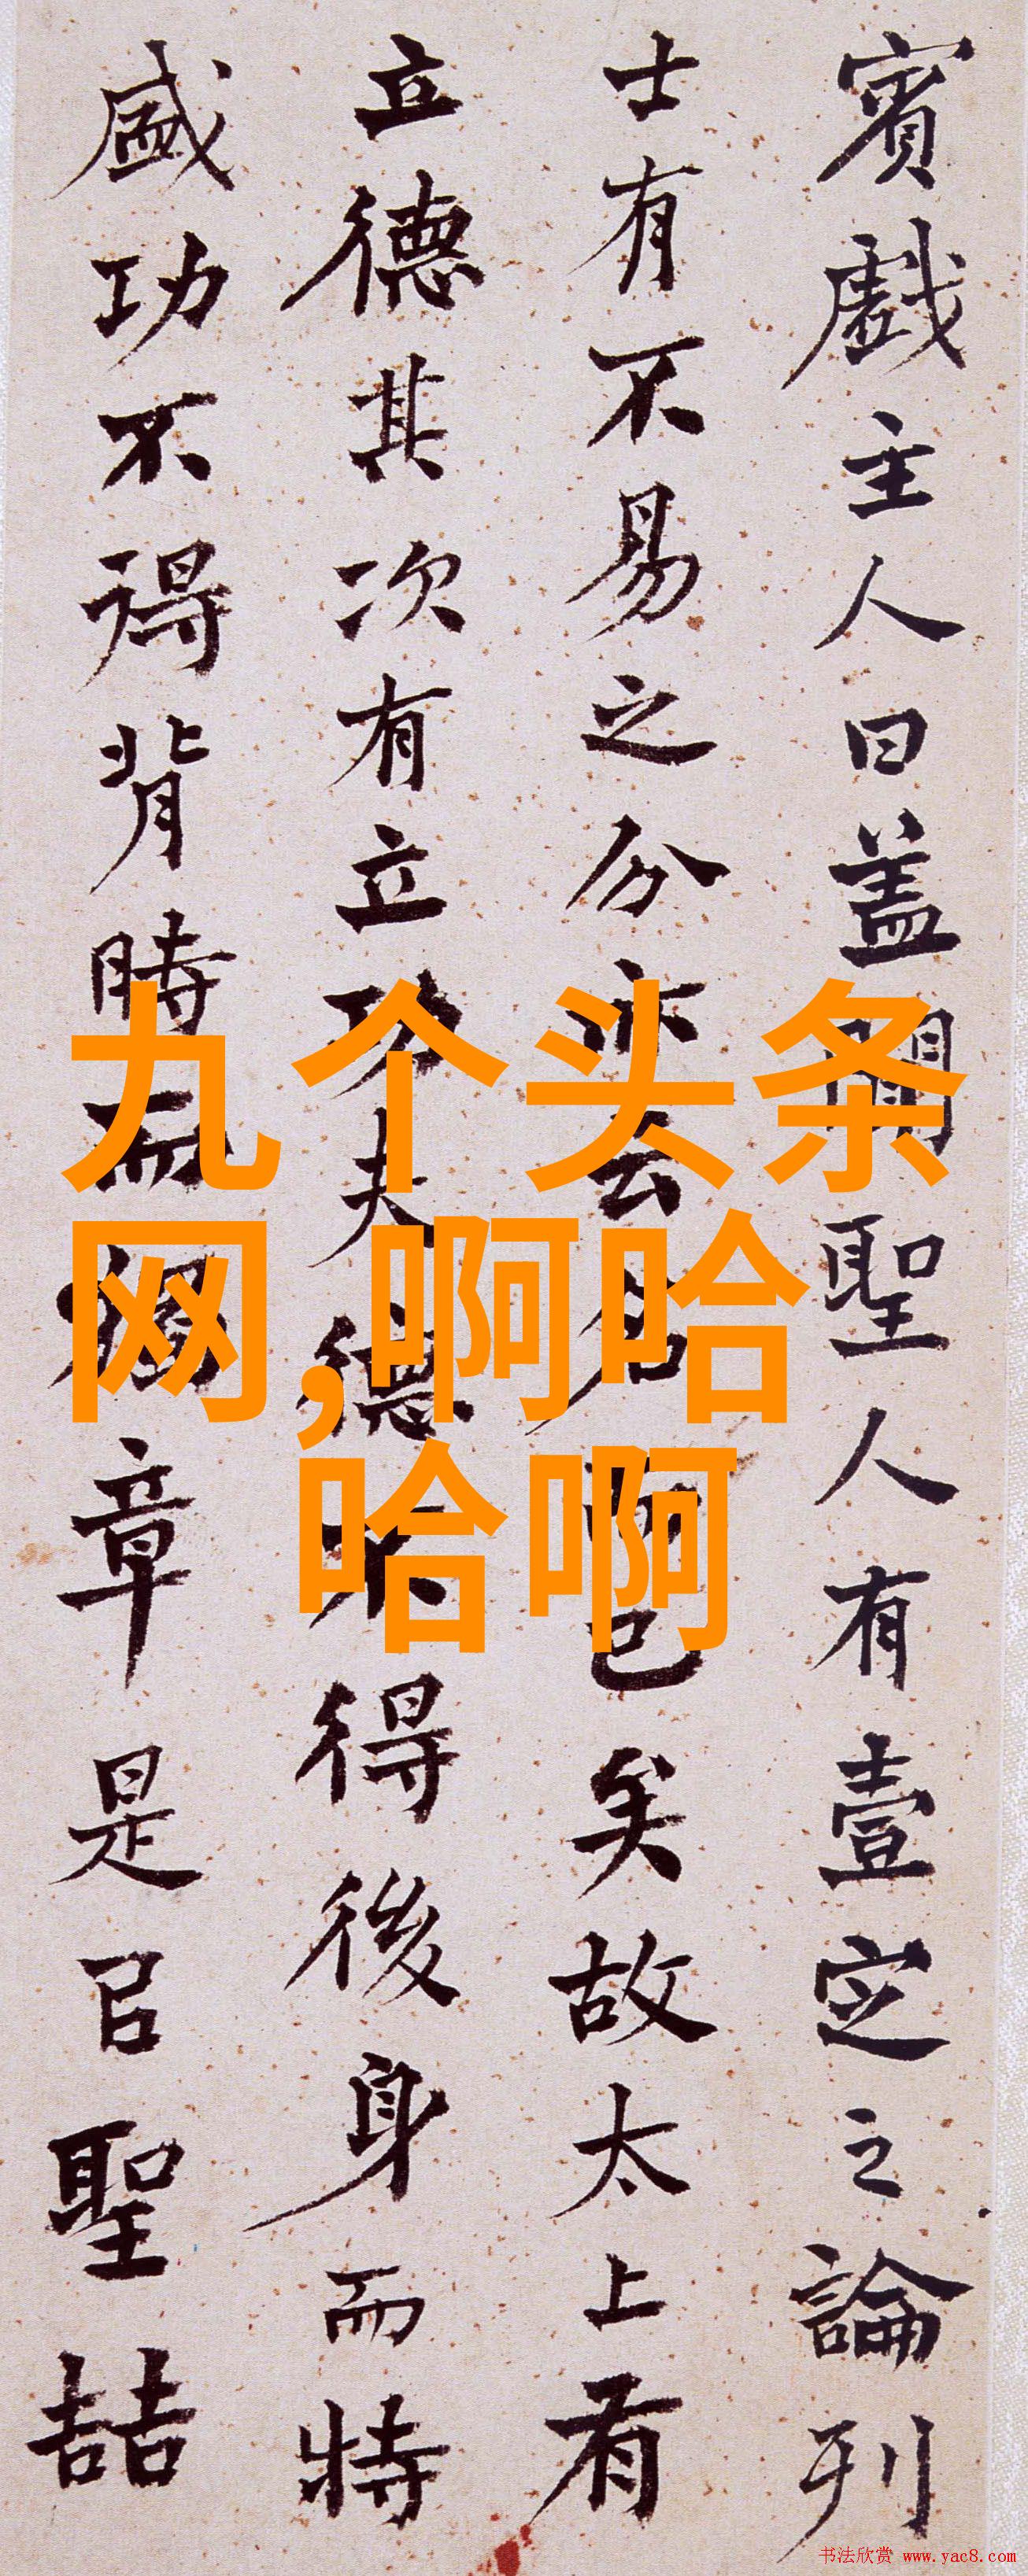 賓戲主人曰盖聞聖人有壹定之論列
士有不易之分亦云名而已矣故太上有
立德其次有立功夫德不得後身而特
盛功不得背時而獨章是㠯聖喆
九个头条
网,啊哈
哈啊
书法欣赏 www.yac8.com